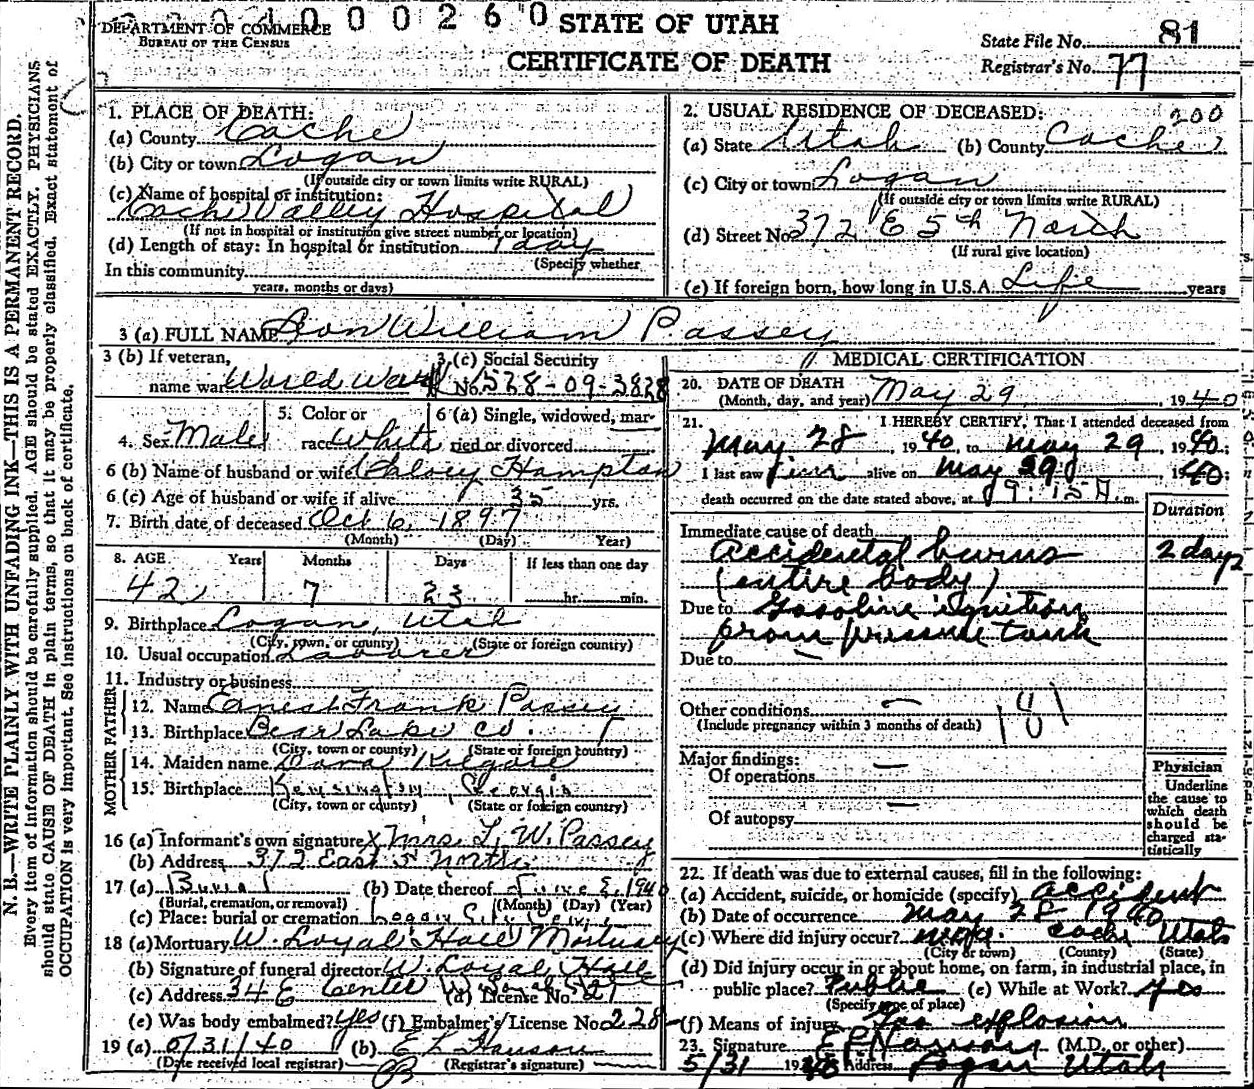 0 0 0 2 6 0
DEPARTMENT OF COMMERCE
BUREAU OF THE CENSUS
STATE OF UTAH
CERTIFICATE OF DEATH
State File No. 81
Registrar's No. 77
N. B.—WRITE PLAINLY WITH UNFADING INK—THIS IS A PERMANENT RECORD.
Every item of information should be carefully supplied. AGE should be stated EXACTLY. PHYSICIANS
should state CAUSE OF DEATH in plain terms, so that it may be properly classified. Exact statement of
OCCUPATION is very important. See instructions on back of certificate.
1. PLACE OF DEATH:
(a) County Cache
(b) City or town Logan
(If outside city or town limits write RURAL)
(c) Name of hospital or institution:
Cache Valley Hospital
(If not in hospital or institution give street number or location)
(d) Length of stay: In hospital or institution 1 day
(Specify whether
In this community
years, months or days)
2. USUAL RESIDENCE OF DECEASED: 200
(a) State Utah (b) County Cache
(c) City or town Logan
(If outside city or town limits write RURAL)
(d) Street No. 372 E 5th North
(If rural give location)
(e) If foreign born, how long in U.S.A. Life years
3 (a) FULL NAME Leon William Passey
3 (b) If veteran,
name war World War
3. (c) Social Security
No. 528-09-3828
4. Sex Male
5. Color or
race White
6 (a) Single, widowed, mar-
ried or divorced
6 (b) Name of husband or wife Chloey Hampton
6 (c) Age of husband or wife if alive 35 yrs.
7. Birth date of deceased Oct 6, 1897
(Month) (Day) Year)
8. AGE Years Months Days If less than one day
42 7 23 hr. min.
9. Birthplace Logan, Utah
(City, town, or county) (State or foreign country)
10. Usual occupation Laborer
11. Industry or business
FATHER
12. Name Ernest Frank Passey
13. Birthplace Bear Lake Co.
(City, town or county) (State or foreign country)
MOTHER
14. Maiden name Dora Kilgore
15. Birthplace Kensington, Georgia
(City, town or county) (State or foreign country)
16 (a) Informant's own signature X Mrs. L. W. Passey
(b) Address 372 East 5 North
17 (a) Burial (b) Date thereof June 2, 1940
(Burial, cremation, or removal) (Month) (Day) (Year)
(c) Place: burial or cremation Logan City Cem.
18 (a) Mortuary W. Loyal Hall Mortuary
(b) Signature of funeral director W. Loyal Hall
(c) Address 34 E Center (d) License No. 21
(e) Was body embalmed? yes (f) Embalmer's License No. 228
19 (a) 5/31/40 (b) E L Hanson
(Date received local registrar) (Registrar's signature)
MEDICAL CERTIFICATION
20. DATE OF DEATH
(Month, day, and year) May 29, 1940
21. I HEREBY CERTIFY, That I attended deceased from
May 28 1940, to May 29 1940;
I last saw him alive on May 29 1940;
death occurred on the date stated above, at 9:15 A.m.
Duration
Immediate cause of death
accidental burns 2 days
(entire body)
Due to Gasoline ignition
from pressure tank
Due to —
Other conditions —
(Include pregnancy within 3 months of death)
181
Major findings:
Of operations —
Of autopsy —
Physician
Underline
the cause to
which death
should be
charged sta-
tistically
22. If death was due to external causes, fill in the following:
(a) Accident, suicide, or homicide (specify) accident
(b) Date of occurrence May 28 1940
(c) Where did injury occur? Cache Utah
(City or town) (County) (State)
(d) Did injury occur in or about home, on farm, in industrial place, in
public place? Public (e) While at Work? yes
(Specify type of place)
(f) Means of injury Gas explosion
23. Signature (M.D. or other)
5/31 1940 Address Logan Utah